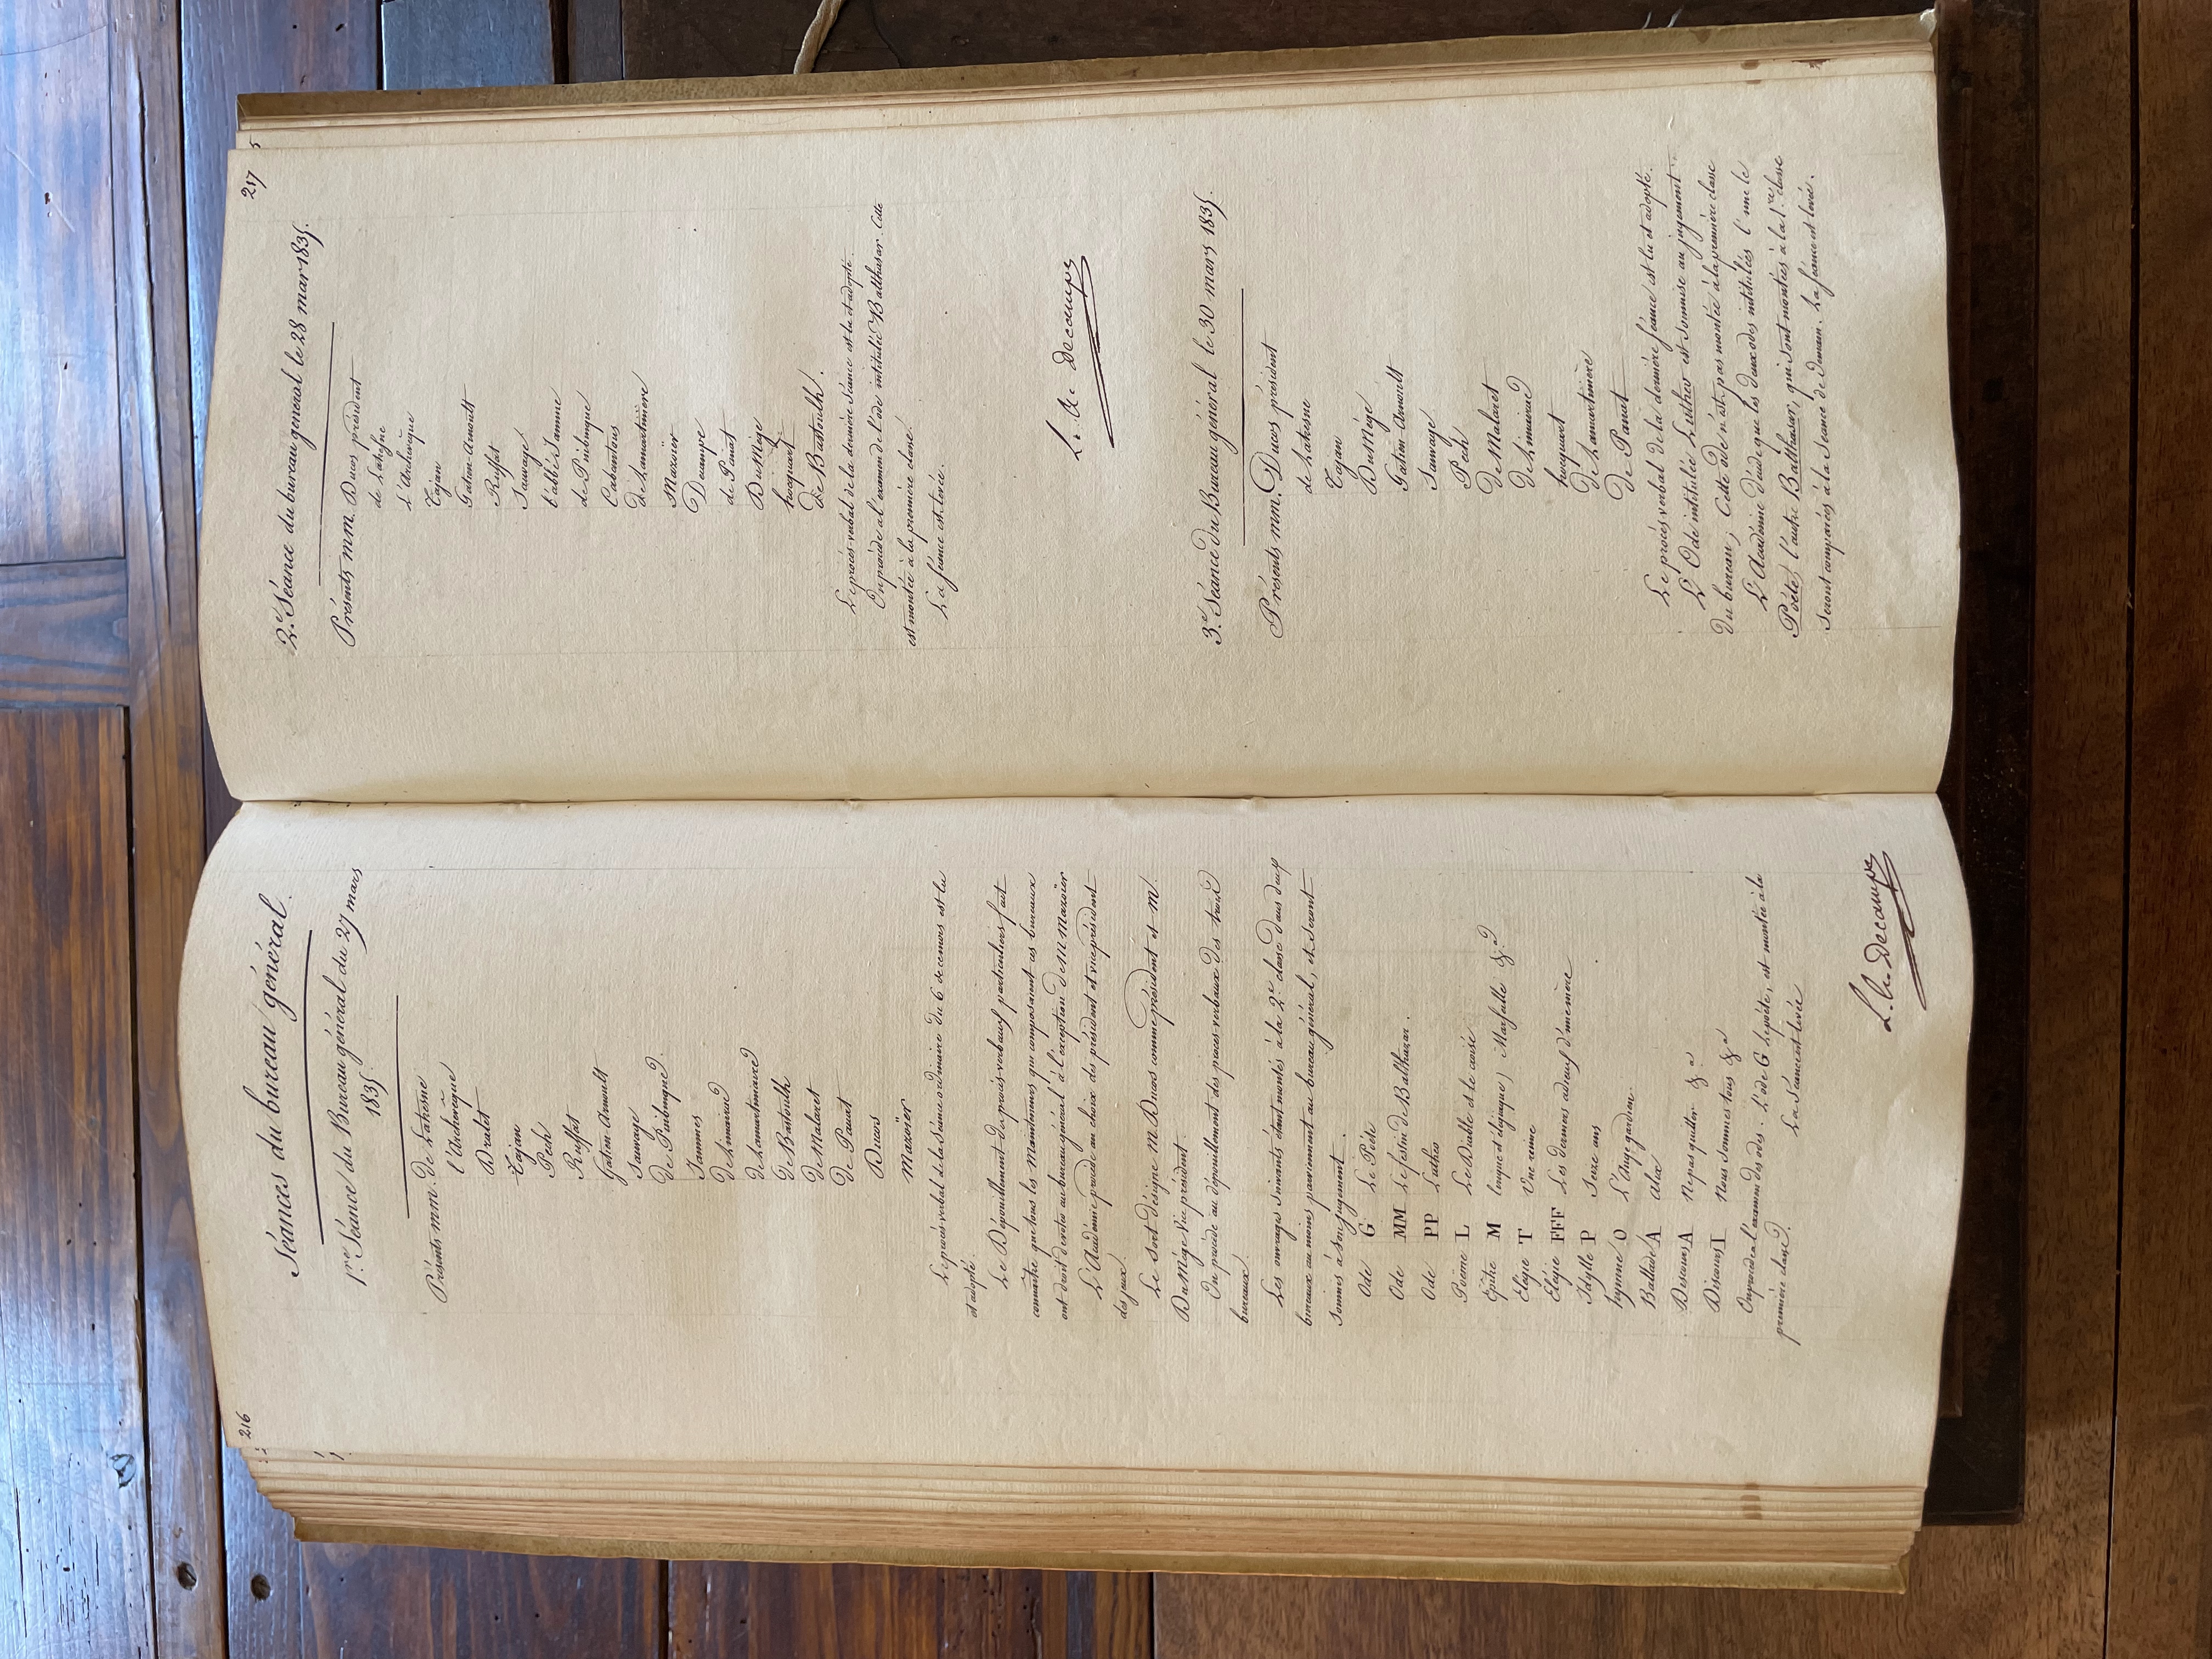 216
Séances du bureau général.
1re. Séance du Bureau général du 27 mars
1835.
Présents mm. de Lahesne
l'Archevêque
Dralet
Tajan
Pech
Ruffat
Gatien-Arnoult
Sauvage
De Puibusque
Jammes
De Limairac
de Lamartinière
De Bastoulh
De Malaret
De Panat
Ducos
Mazoïer
Le procès verbal de la séance ordinaire du 6 de ce mois est lu
et adopté.
Le Dépouillement des procès-verbaux particuliers fait
connaître que tous les mainteneurs qui composaient ces bureaux
ont droit de vote au bureau général à l'exception de M Mazoïer
L'Académie procède au choix des président et vice président
des jeux.
Le sort désigne m Ducos comme président et M.
Du Mège vice président.
On procède au dépouillement des procès-verbaux des trois
bureaux.
Les ouvrages suivants étant montés à la 2e classe dans deux
bureaux au moins parviennent au bureau général, et seront
soumis à son jugement.
Ode G Le Poëte
Ode MM Le festin de Balthazar.
Ode PP Luther
Poëme L Le Diable et le
Epître M longue et élegiaque, Marseille &a
Elégie T Une reine
Elégie FFF Les derniers adieux d'une mère
Idylle P Seize ans
hymne O L'Ange gardien.
Ballade A Alix
Discours A Ne pas quitter &a
Discours I Nous sommes tous &a
On procède à l'examen des odes. L'ode G Le poëte, est montée à la
première classe.
La Séance est levée
L. A. Decampe
217
2e. Séance du bureau general le 28 mars 1835.
Présents mm. Ducos président
de Lahesne
L'Archevêque
Tajan
Gatien-Arnoult
Ruffat
Sauvage
l'abbé Jamme
de Puibusque
Cabantous
de Lamartinière
Mazoïer
Decampe
de Panat
Du Mège
hocquart
De Bastoulh.
Le procès-verbal de la dernière séance est lu et adopté.
On procède à l'examen de l'ode intitulée Balthasar. Cette
est montée à la première classe.
La séance est levée.
L. A. Decampe
3e. Séance Du Bureau général le 30 mars 1835.
Présents mm. Ducos président
de Lahesne
Tajan
Du Mège
Gatien-Arnoult
Sauvage
Pech
De Malaret
De Limairac
hocquart
De Lamartinière
De Panat
Le procès verbal de la dernière séance est lu et adopté.
L'Ode intitulée Luther est soumise au jugement
du bureau; Cette ode n'est pas montée à la première classe
L'Académie décide que les deux odes intitulées l'une le
Poëte, l'autre Balthasar, qui sont montées à la 1re. classe
seront comparées à la Séance de demain. La séance est levée.